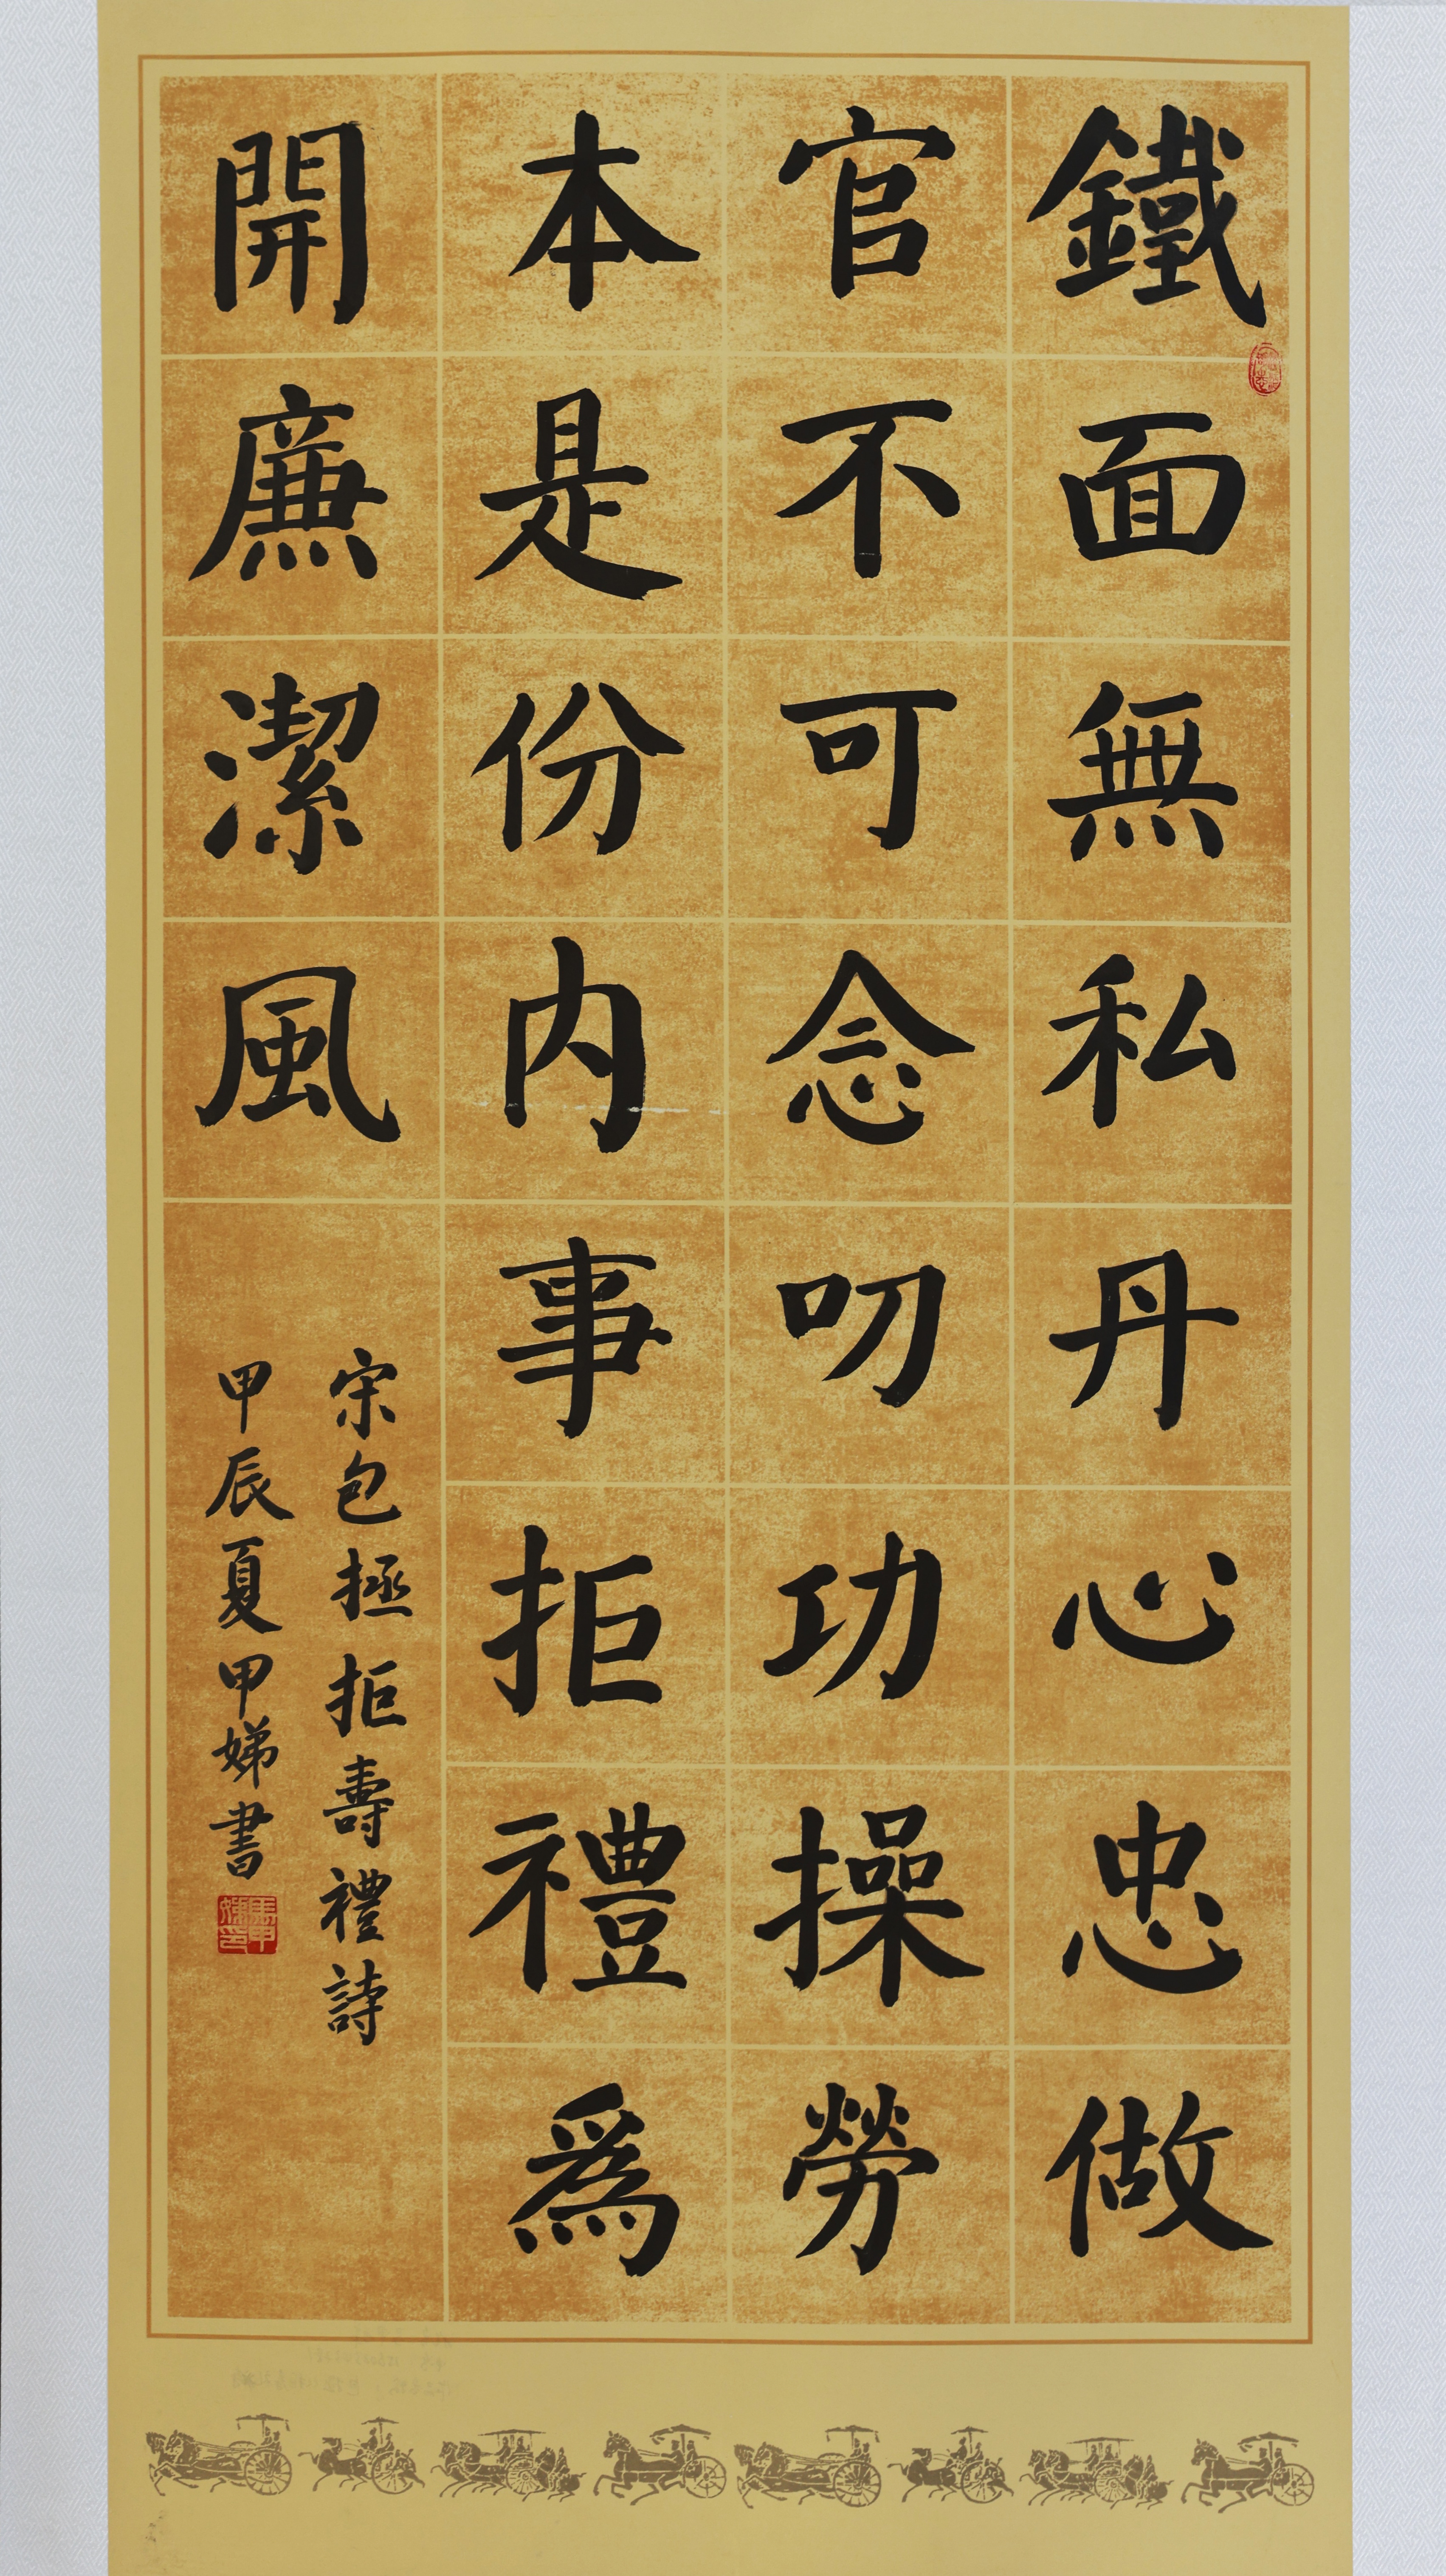 鐵面無私丹心忠做
官不可念叨功操勞
本是份内事拒禮爲
開廉潔風
宋包拯拒壽禮詩
甲辰夏甲娣書
馬甲娣印